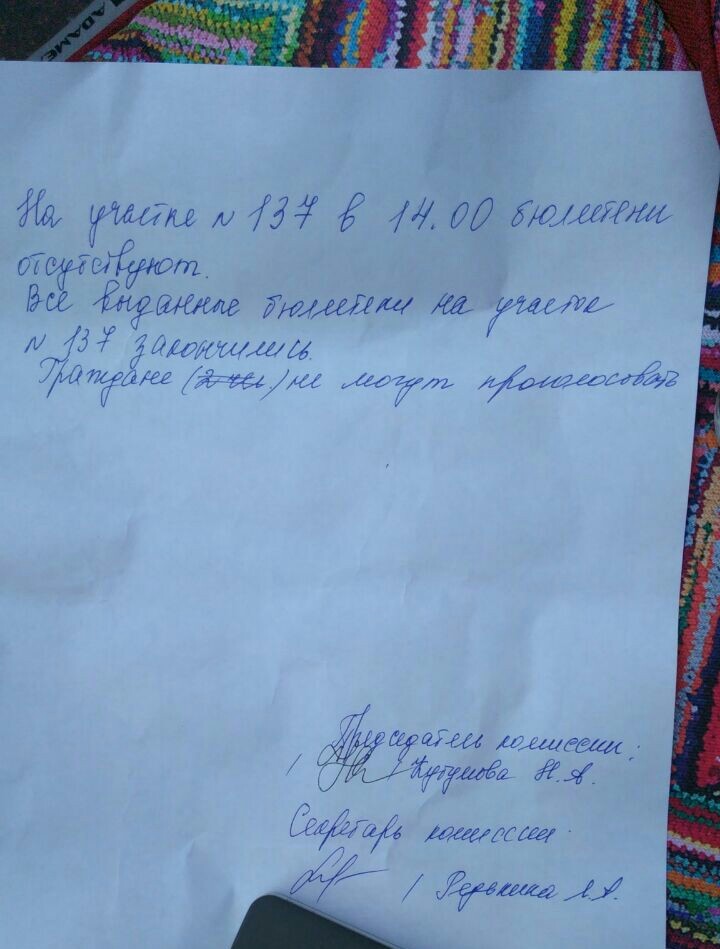 ADAME
На участке N 137 в 14.00 бюллетени
отсутствуют.
Все выданные бюллетени на участок
N 137 закончились.
Граждане (2 чел.) не могут проголосовать
Председатель комиссии:
/ / Кутумова Н.А.
Секретарь комиссии
/ Редькина А.А.